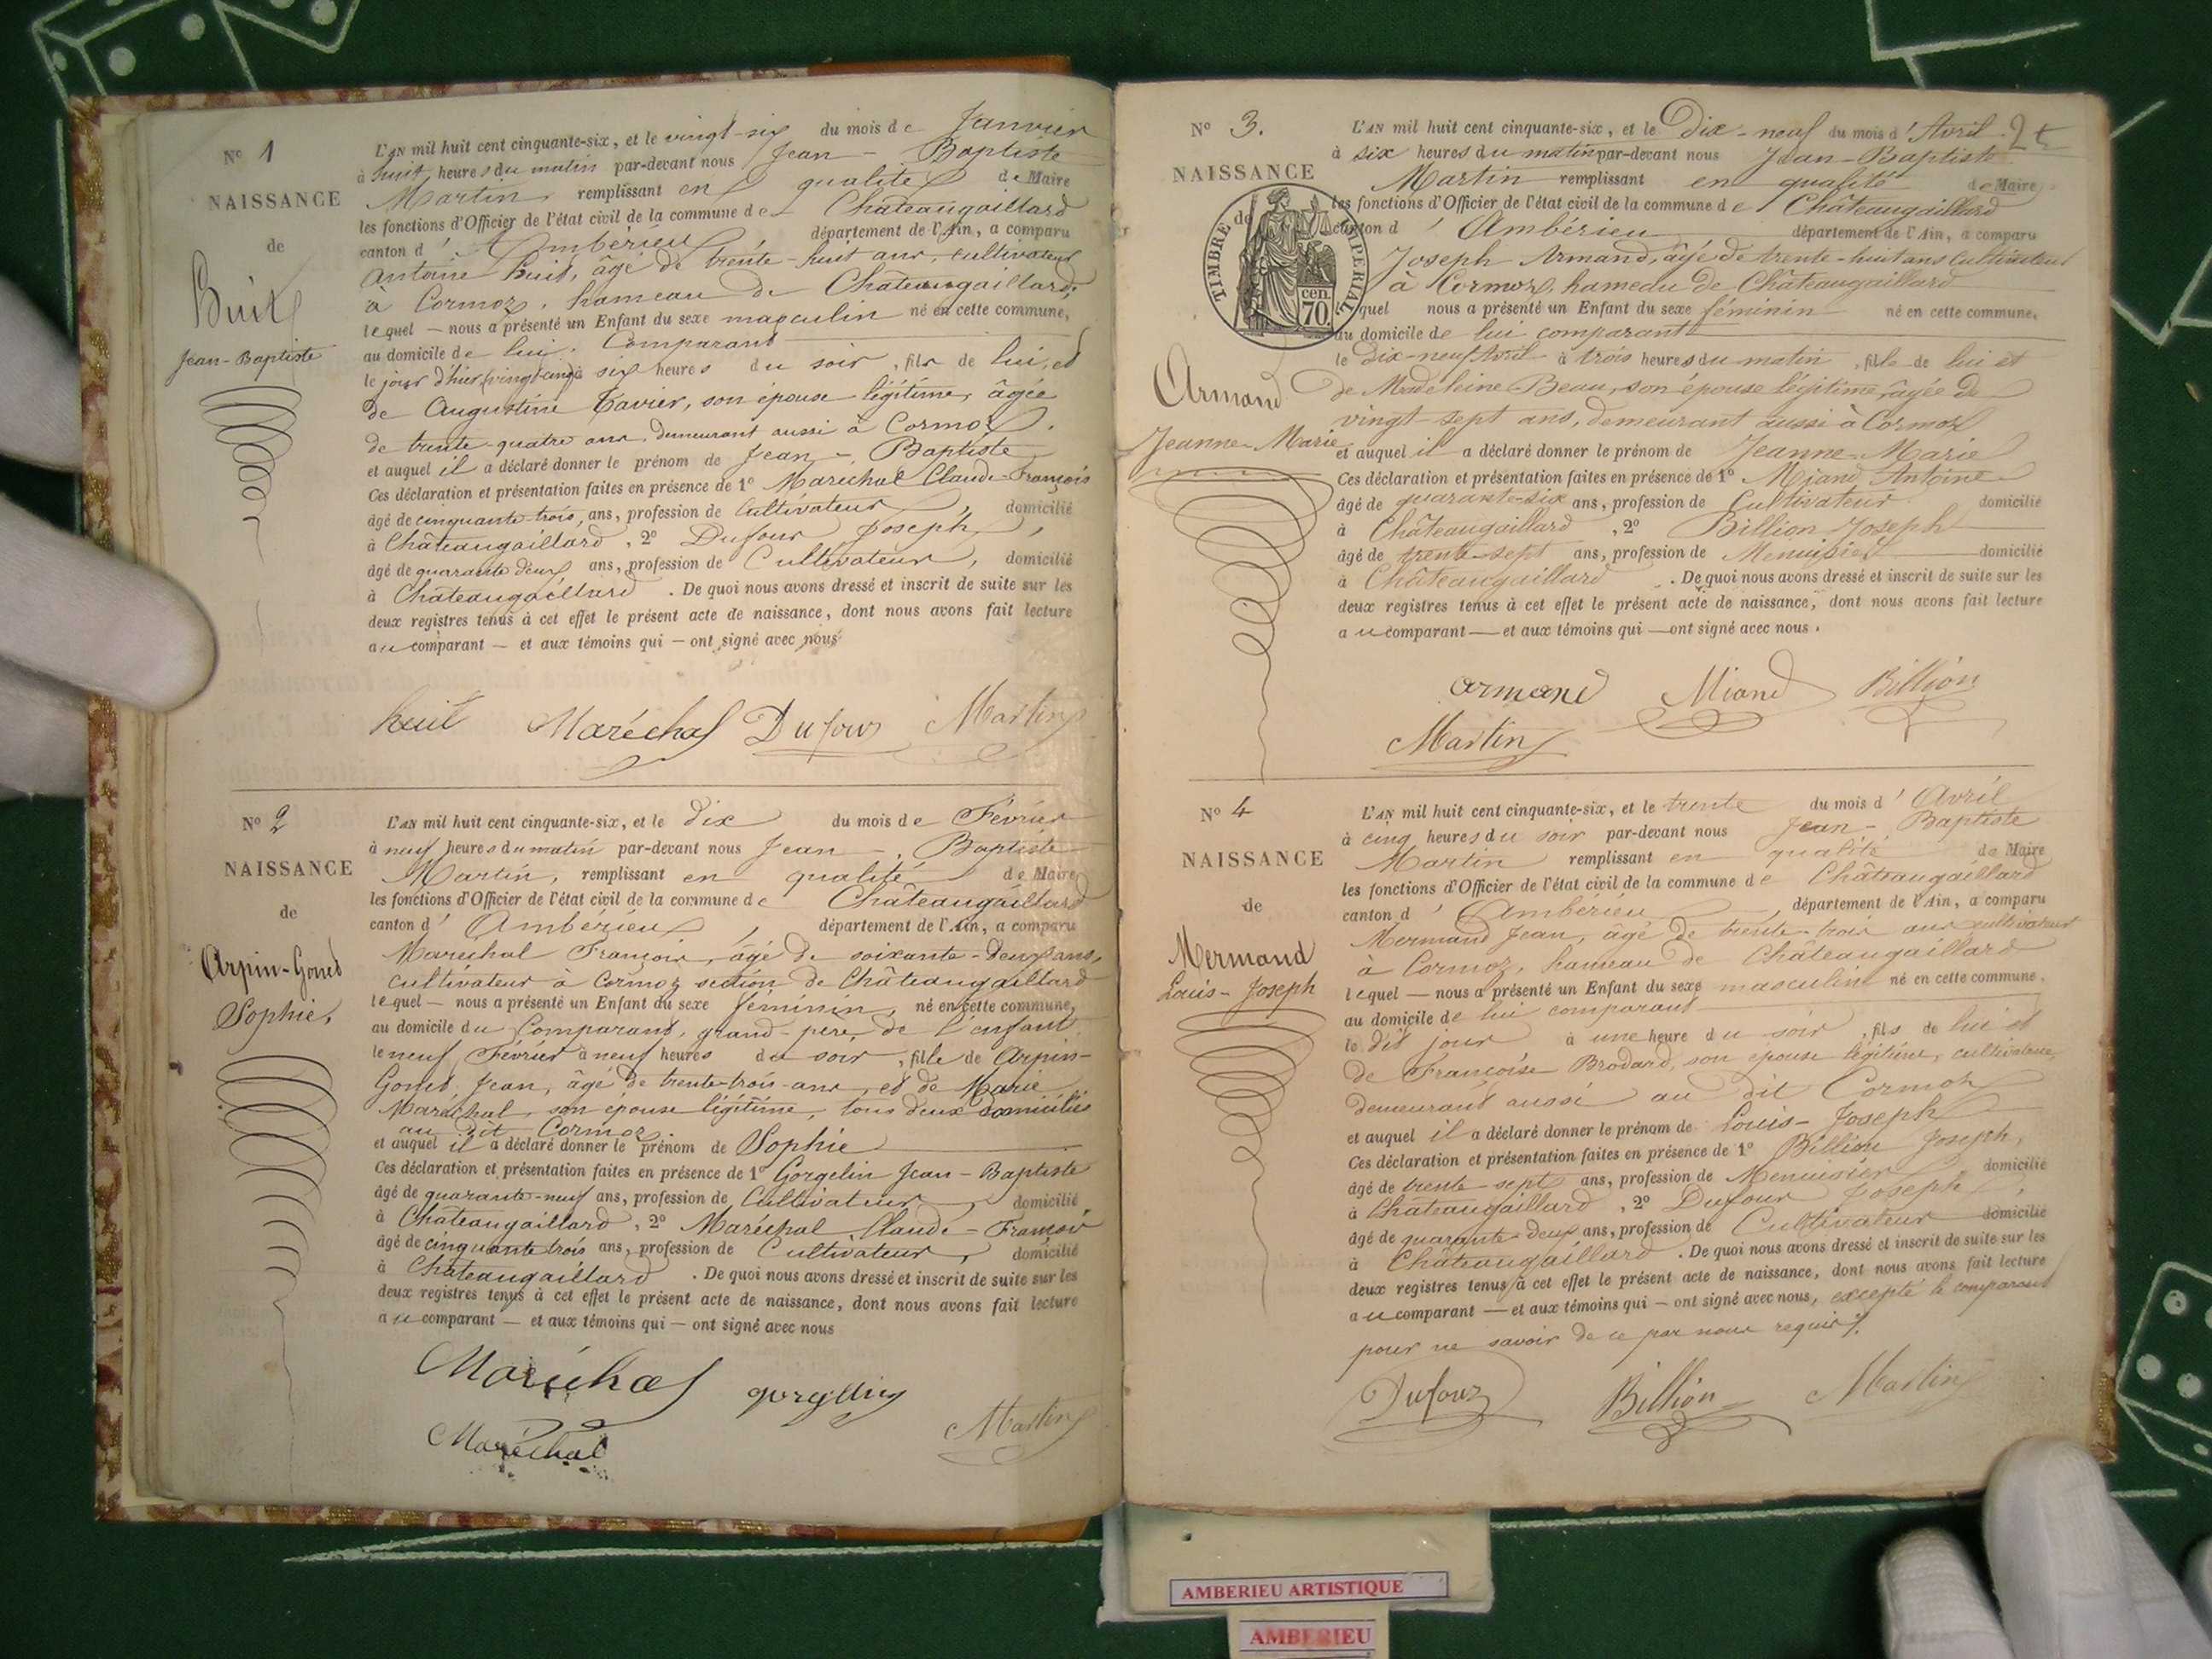 N° 1
NAISSANCE
de
Buit
Jean-Baptiste
L'AN mil huit cent cinquante-six, et le vingt-six du mois de Janvier
à huit heures du matin par-devant nous Jean-Baptiste
Martin, remplissant en qualité de Maire
les fonctions d'Officier de l'état civil de la commune de Châteaugaillard
canton d'Ambérieu département de l'Ain, a comparu
Antoine Buit, âgé de trente-huit ans, cultivateur
à Cormoz, hameau de Châteaugaillard,
lequel — nous a présenté un Enfant du sexe masculin né en cette commune,
au domicile de lui Comparant
le jour d'hier vingt-cinq à six heures du soir, fils de lui, et
de Augustine Tavier, son épouse légitime, âgée
de trente-quatre ans, demeurant aussi à Cormoz.
et auquel il a déclaré donner le prénom de Jean-Baptiste
Ces déclaration et présentation faites en présence de 1° Maréchal Claude-François
âgé de cinquante-trois, ans, profession de Cultivateur, domicilié
à Châteaugaillard, 2° Dufour Joseph,
âgé de quarante deux ans, profession de Cultivateur, domicilié
à Châteaugaillard. De quoi nous avons dressé et inscrit de suite sur les
deux registres tenus à cet effet le présent acte de naissance, dont nous avons fait lecture
au comparant — et aux témoins qui — ont signé avec nous
buit Maréchal Dufour Martin
N° 2
NAISSANCE
de
Arpin-Gonet
Sophie,
L'AN mil huit cent cinquante-six, et le dix du mois de Février
à neuf heures du matin par-devant nous Jean-Baptiste
Martin, remplissant en qualité de Maire
les fonctions d'Officier de l'état civil de la commune de Châteaugaillard
canton d'Ambérieu, département de l'Ain, a comparu
Maréchal François, âgé de soixante-deux ans,
cultivateur à Cormoz section de Châteaugaillard
lequel — nous a présenté un Enfant du sexe féminin, né en cette commune,
au domicile du Comparant, grand-père de l'enfant
le neuf Février à neuf heures du soir, fille de Arpin-
Gonet Jean, âgé de trente-trois ans, et de Marie
Maréchal, son épouse légitime, tous deux domiciliés
au dit Cormoz
et auquel il a déclaré donner le prénom de Sophie
Ces déclaration et présentation faites en présence de 1° Gorgelin Jean-Baptiste
âgé de quarante-neuf ans, profession de Cultivateur, domicilié
à Châteaugaillard, 2° Maréchal Claude-François
âgé de cinquante trois ans, profession de Cultivateur, domicilié
à Châteaugaillard. De quoi nous avons dressé et inscrit de suite sur les
deux registres tenus à cet effet le présent acte de naissance, dont nous avons fait lecture
au comparant — et aux témoins qui — ont signé avec nous
Maréchal Martin
Maréchal
N° 3.
NAISSANCE
de
TIMBRE IMPERIAL
cen.
70.
Armand
Jeanne-Marie
L'AN mil huit cent cinquante-six, et le Dix-neuf du mois d'Avril
à six heures du matin par-devant nous Jean-Baptiste
Martin remplissant en qualité de Maire
les fonctions d'Officier de l'état civil de la commune de Châteaugaillard
canton d'Ambérieu département de l'Ain, a comparu
Joseph Armand, âgé de trente-huit ans Cultivateur
à Cormoz, hameau de Châteaugaillard
lequel nous a présenté un Enfant du sexe féminin né en cette commune,
au domicile de lui comparant
le Dix-neuf Avril à trois heures du matin, fille de lui et
de Madeleine Beau, son épouse légitime, âgée de
vingt-sept ans, demeurant aussi à Cormoz
et auquel il a déclaré donner le prénom de Jeanne-Marie
Ces déclaration et présentation faites en présence de 1° Miand Antoine
âgé de quarante-six ans, profession de Cultivateur domicilié
à Châteaugaillard, 2° Billion Joseph
âgé de trente-sept ans, profession de Menuisier domicilié
à Châteaugaillard. De quoi nous avons dressé et inscrit de suite sur les
deux registres tenus à cet effet le présent acte de naissance, dont nous avons fait lecture
au comparant — et aux témoins qui — ont signé avec nous.
armand Miand Billion
Martin
N° 4
NAISSANCE
de
Mermand
Louis-Joseph
L'AN mil huit cent cinquante-six, et le trente du mois d'Avril
à cinq heures du soir par-devant nous Jean-Baptiste
Martin remplissant en qualité de Maire
les fonctions d'Officier de l'état civil de la commune de Châteaugaillard
canton d'Ambérieu département de l'Ain, a comparu
Mermand Jean, âgé de trente-trois ans cultivateur
à Cormoz, hameau de Châteaugaillard
lequel — nous a présenté un Enfant du sexe masculin né en cette commune,
au domicile de lui comparant
le dit jour à une heure du soir, fils de lui et
de Françoise Brodard, son épouse légitime, cultivateur,
demeurant aussi au dit Cormoz
et auquel il a déclaré donner le prénom de Louis-Joseph
Ces déclaration et présentation faites en présence de 1° Billion Joseph,
âgé de trente-sept ans, profession de Menuisier, domicilié
à Châteaugaillard, 2° Dufour Joseph,
âgé de quarante-deux ans, profession de Cultivateur domicilié
à Châteaugaillard. De quoi nous avons dressé et inscrit de suite sur les
deux registres tenus à cet effet le présent acte de naissance, dont nous avons fait lecture
au comparant — et aux témoins qui — ont signé avec nous, excepté le comparant
pour ne savoir de ce par nous requis.
Dufour Billion Martin
AMBERIEU ARTISTIQUE
AMBERIEU